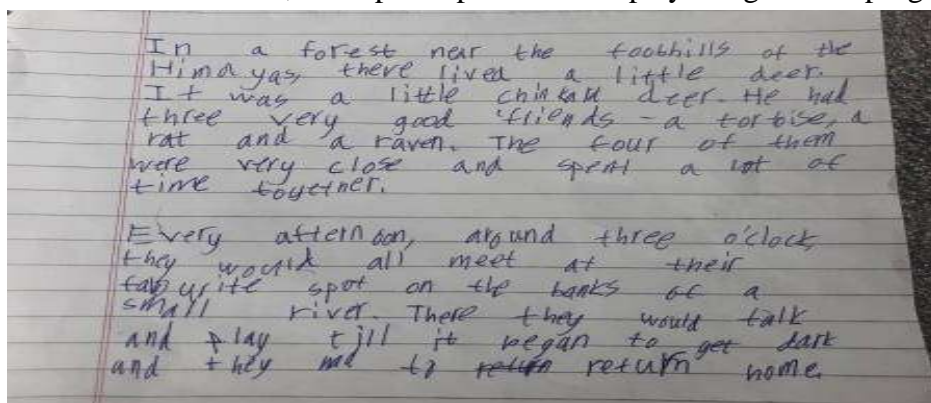 In a forest near the foothills of the
Himalyas, there lived a little deer.
It was a little chinkau deer. He had
three very good friends - a tortoise, a
rat and a raven. The four of them
were very close and spent a lot of
time together.
Every afternoon, around three o'clock,
they would all meet at their
favourite spot on the banks of a
small river. There they would talk
and play till it began to get dark
and they had to return home.